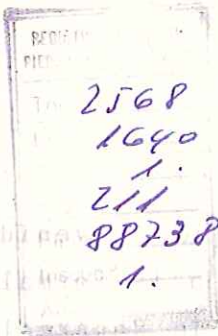 2568
1640
1.
211
88738
1.